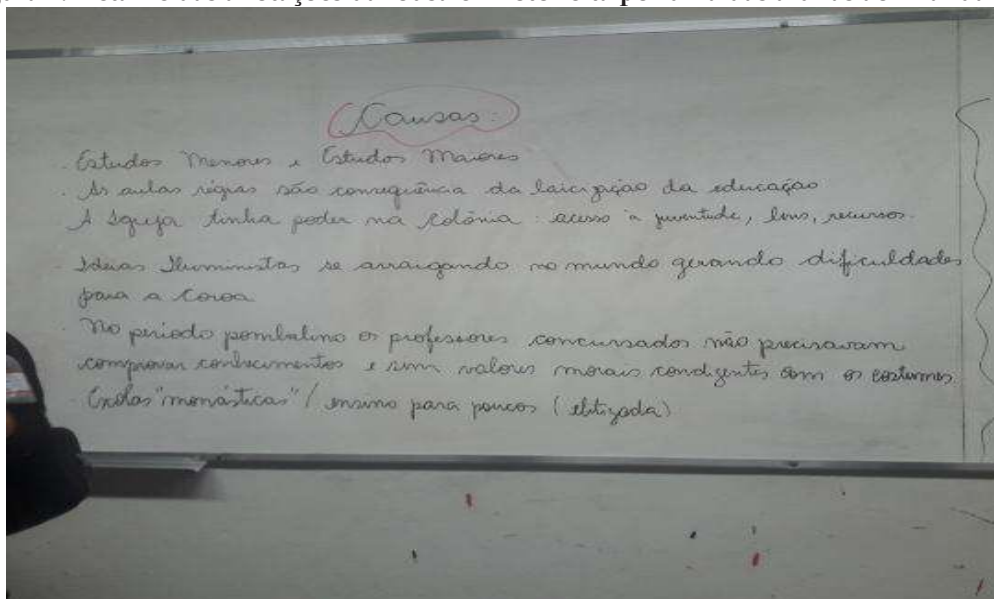 Causas:
. Estudos Menores e Estudos Maiores
. As aulas régias são consequência da laicização da educação
A Igreja tinha poder na colônia: acesso à juventude, bens, recursos.
. Ideias Iluministas se arraigando no mundo gerando dificuldades
para a Coroa
. No período pombalino os professores concursados não precisavam
comprovar conhecimentos e sim valores morais condizentes com os costumes
. Escolas "monásticas" / ensino para poucos (elitizada)